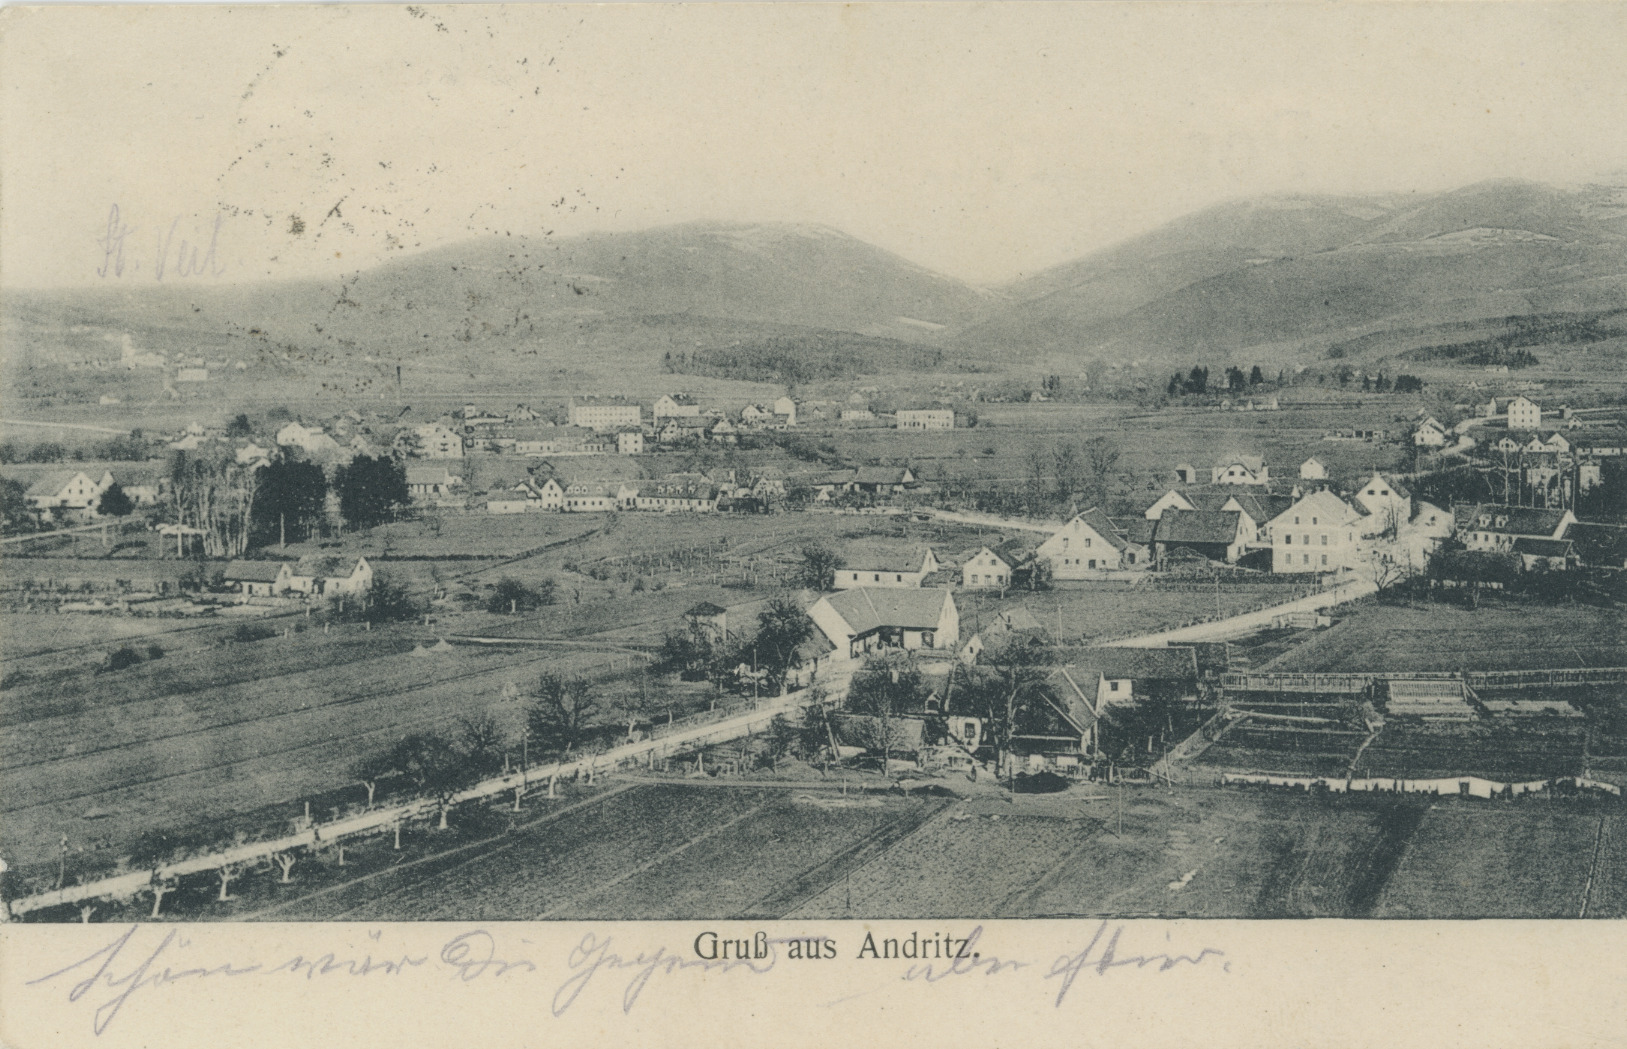 St. Veit
Gruß aus Andritz.
Schön wär die Gegend aber